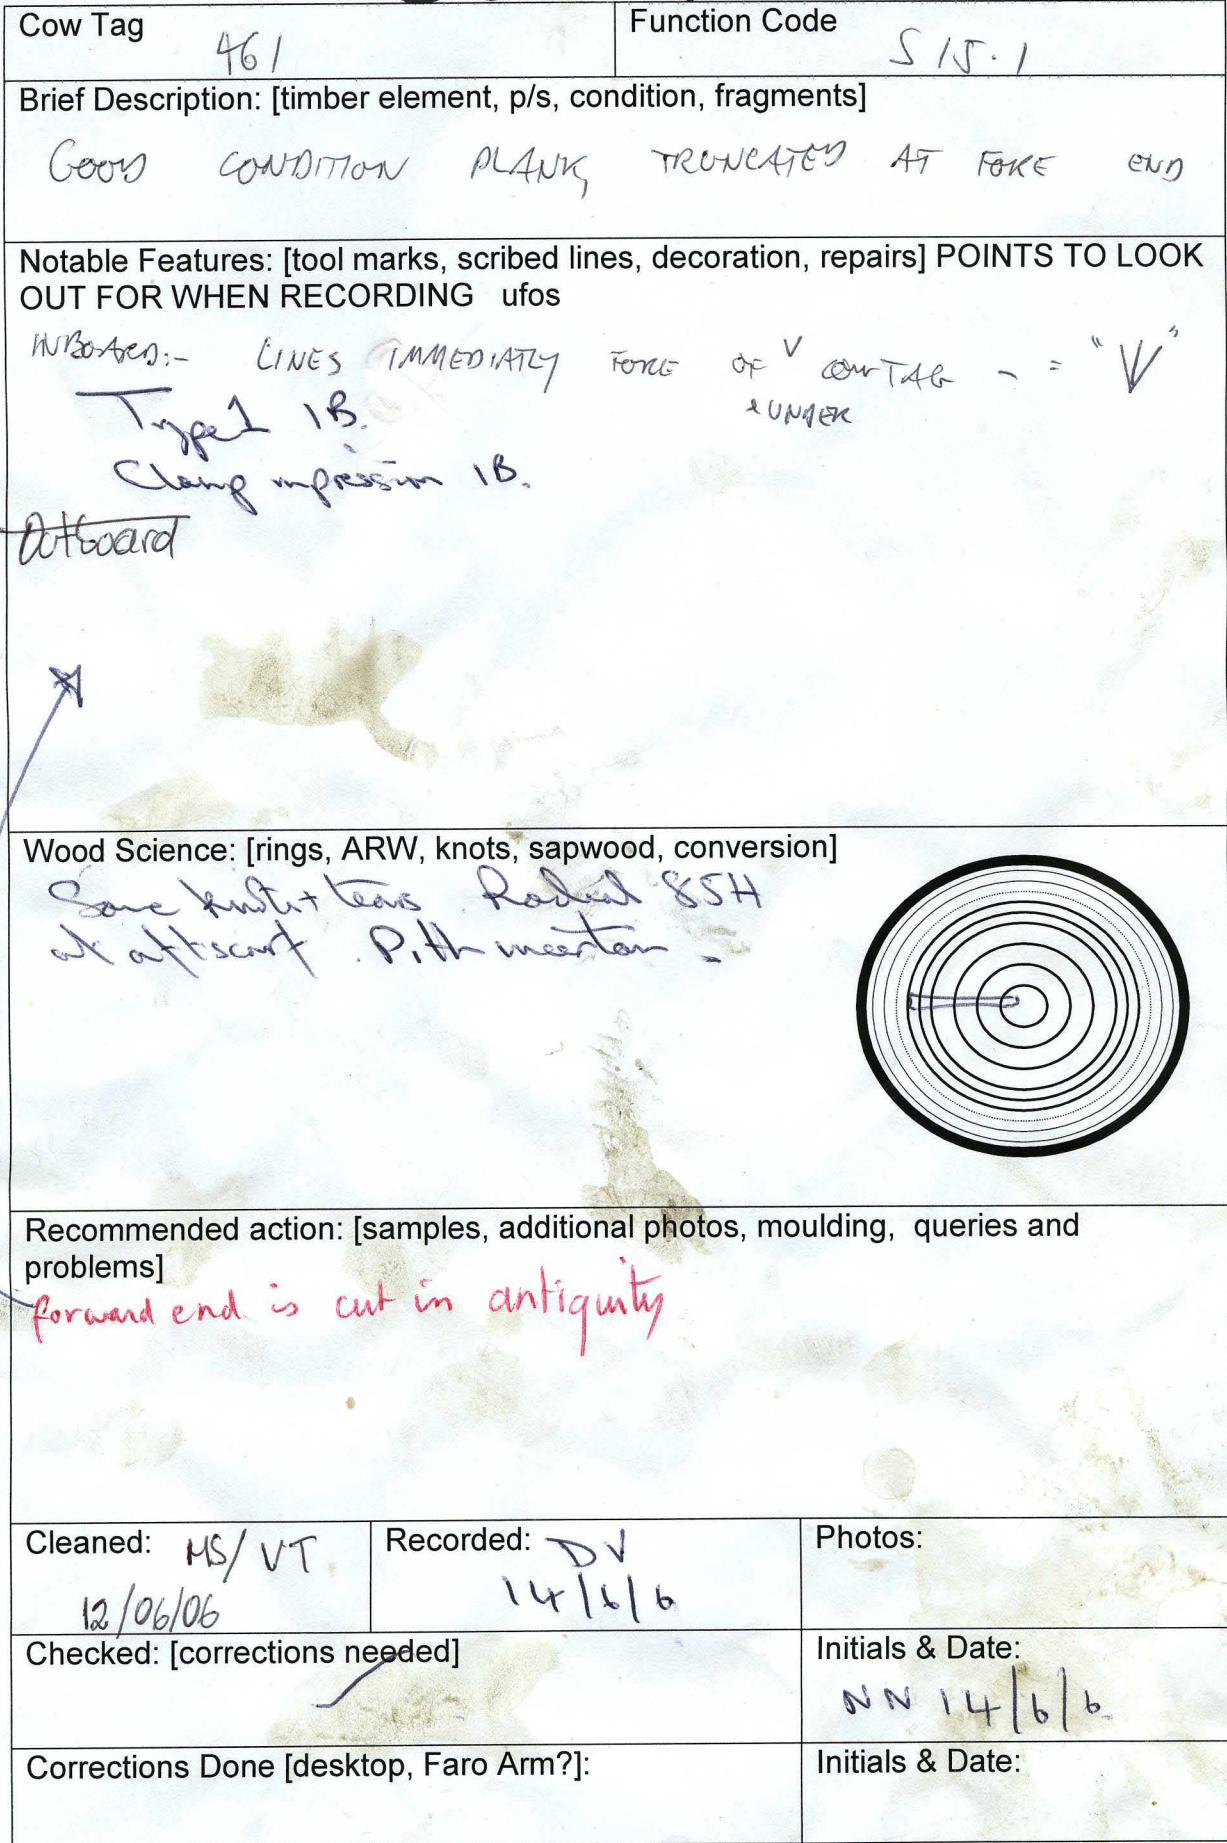 Cow Tag
461
Function Code
S15.1
Brief Description: [timber element, p/s, condition, fragments]
GOOD CONDITION PLANK, TRUNCATED AT FORE END
Notable Features: [tool marks, scribed lines, decoration, repairs] POINTS TO LOOK
OUT FOR WHEN RECORDING ufos
INBOARD:- LINES IMMEDIATLY FORE OF V COW TAG - = "V"
& UNDER
Type 1 IB.
Clamp impression IB.
Outboard
Wood Science: [rings, ARW, knots, sapwood, conversion]
Some knots + tears Radial 85H
at aft scarf. Pith uncertain -
Recommended action: [samples, additional photos, moulding, queries and
problems]
forward end is cut in antiquity
Cleaned: MS/VT
12/06/06
Recorded: DV
14/6/6
Photos:
Checked: [corrections needed]
Initials & Date:
NN 14/6/6
Corrections Done [desktop, Faro Arm?]:
Initials & Date: